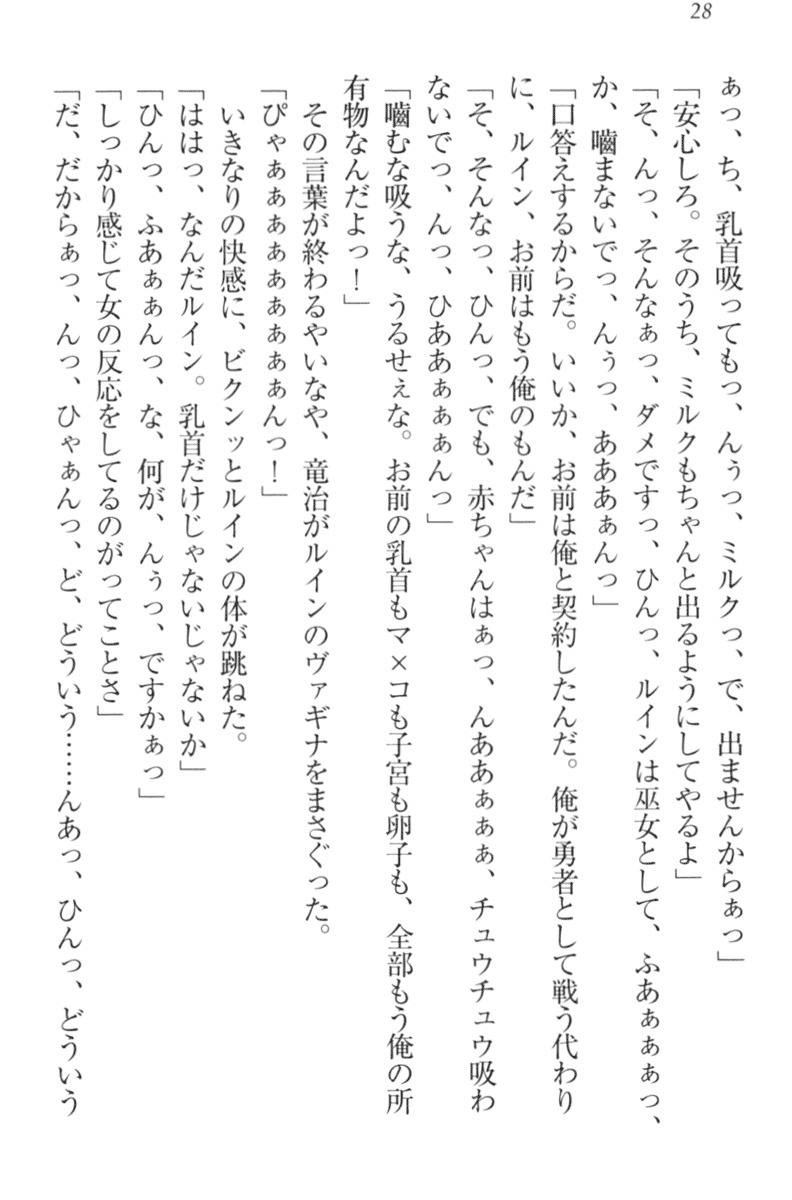 28
ぁっ、ち、乳首吸ってもっ、んぅっ、ミルクっ、で、出ませんからぁっ」
「安心しろ。そのうち、ミルクもちゃんと出るようにしてやるよ」
「そ、んっ、そんなぁっ、ダメですっ、ひんっ、ルインは巫女として、ふあぁぁぁっ、
か、嚙まないでっ、んぅっ、あああぁんっ」
「口答えするからだ。いいか、お前は俺と契約したんだ。俺が勇者として戦う代わり
に、ルイン、お前はもう俺のもんだ」
「そ、そんなっ、ひんっ、でも、赤ちゃんはぁっ、んああぁぁぁ、チュウチュウ吸わ
ないでっ、んっ、ひああぁぁぁんっ」
「嚙むな吸うな、うるせぇな。お前の乳首もマ×コも子宮も卵子も、全部もう俺の所
有物なんだよっ！」
その言葉が終わるやいなや、竜治がルインのヴァギナをまさぐった。
「ぴゃぁぁぁぁぁぁぁぁぁんっ！」
いきなりの快感に、ビクンッとルインの体が跳ねた。
「ははっ、なんだルイン。乳首だけじゃないじゃないか」
「ひんっ、ふあぁぁんっ、な、何が、んぅっ、ですかぁっ」
「しっかり感じて女の反応をしてるのがってことさ」
「だ、だからぁっ、んっ、ひゃぁんっ、ど、どういう……んあっ、ひんっ、どういう